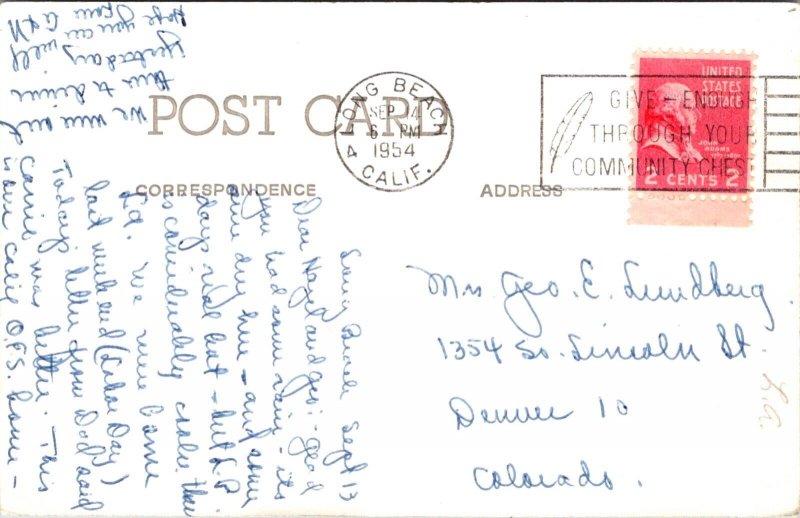 POST CARD
CORRESPONDENCE
ADDRESS
LONG BEACH
SEP 14
6 PM
1954
4 CALIF.
GIVE - ENOUGH
THROUGH YOUR
COMMUNITY CHEST
UNITED
STATES
POSTAGE
JOHN
ADAMS
2 CENTS 2
Mrs. Geo. E. Lundberg.
1354 So. Lincoln St.
Denver 10
Colorado.
Long Beach Sept 13
Dear Hazel and Geo: - glad
you had some rain - its
some dry here - and some
days real hot - but L.B.
is considerably cooler than
L.A. We were home
last weekend (Labor Day)
Today's letter from Dad said
Carrie was better. This
is our Calif. O.E.S. home -
We were out
there to dinner
yesterday
Hope you are well
From A & N